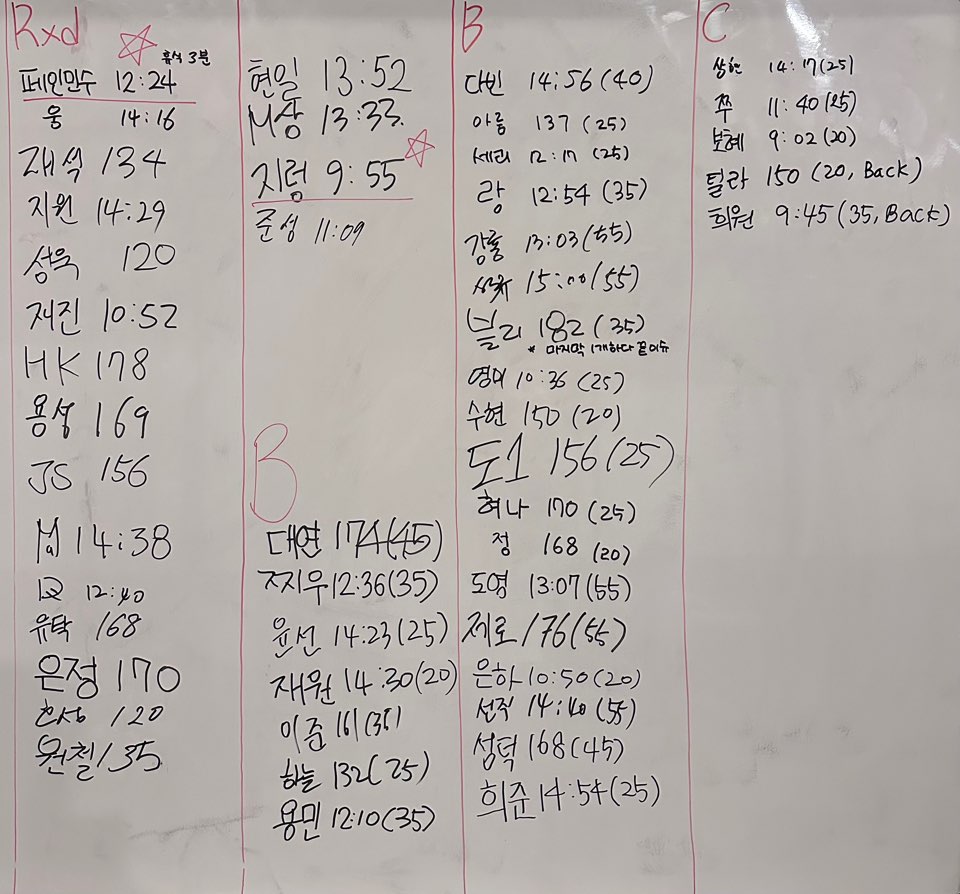 Rxd
휴식 3분
페인민수 12:24
웅 14:16
재석 134
지원 14:29
성욱 120
재진 10:52
HK 178
용성 169
JS 156
M 14:38
IQ 12:40
유탁 168
은정 170
한성 120
원철 135
현일 13:52
M상 13:33
지렁 9:55
준성 11:09
B
대연 174(45)
쪼지우 12:36(35)
윤선 14:23(25)
재원 14:30(20)
이준 161(35)
하늘 132(25)
용민 12:10(35)
B
다빈 14:56(40)
아름 137 (25)
세리 12:17 (25)
랑 12:54 (35)
강룡 13:03(55)
15:00(55)
블리 182 (35)
* 마지막 1개하다 끝이슈
영미 10:36 (25)
수현 150(20)
도1 156(25)
혀나 170 (25)
정 168 (20)
도영 13:07(55)
제로 176(55)
은하 10:50(20)
선직 14:40(55)
성덕 168(45)
희준 14:54(25)
C
상현 14:17(25)
쭈 11:40(25)
보혜 9:02(20)
털라 150 (20, Back)
희원 9:45(35, Back)